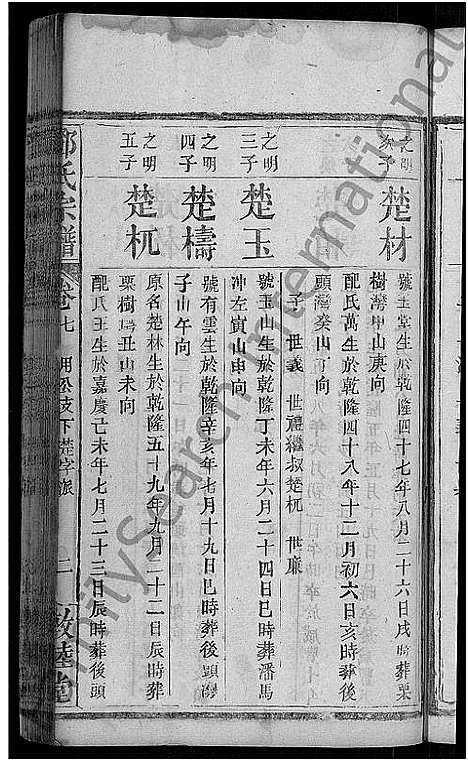 之明
次子
楚材
號玉堂生於乾隆四十七年八月二十六日戌時葬栗
樹灣申山庚向
配氏萬生於乾隆四十八年十二月初六日亥時葬後
頭灣癸山丁向
子 世義 世禮繼叔楚杌 世廉
之明
三子
楚玉
號玉山生於乾隆丁未年六月二十四日巳時葬潘馬
冲左寅山申向
之明
四子
楚檮
號有雲生於乾隆辛亥年七月十九日巳時葬後頭灣
子山午向
之明
五子
楚杌
原名楚林生於乾隆五十九年九月二十二日辰時葬
栗樹灣丑山未向
配氏王生於嘉慶己未年七月二十三日辰時葬後頭
氏宗譜
卷七
朋松支下楚字派
二
敦睦堂
FamilySearch International